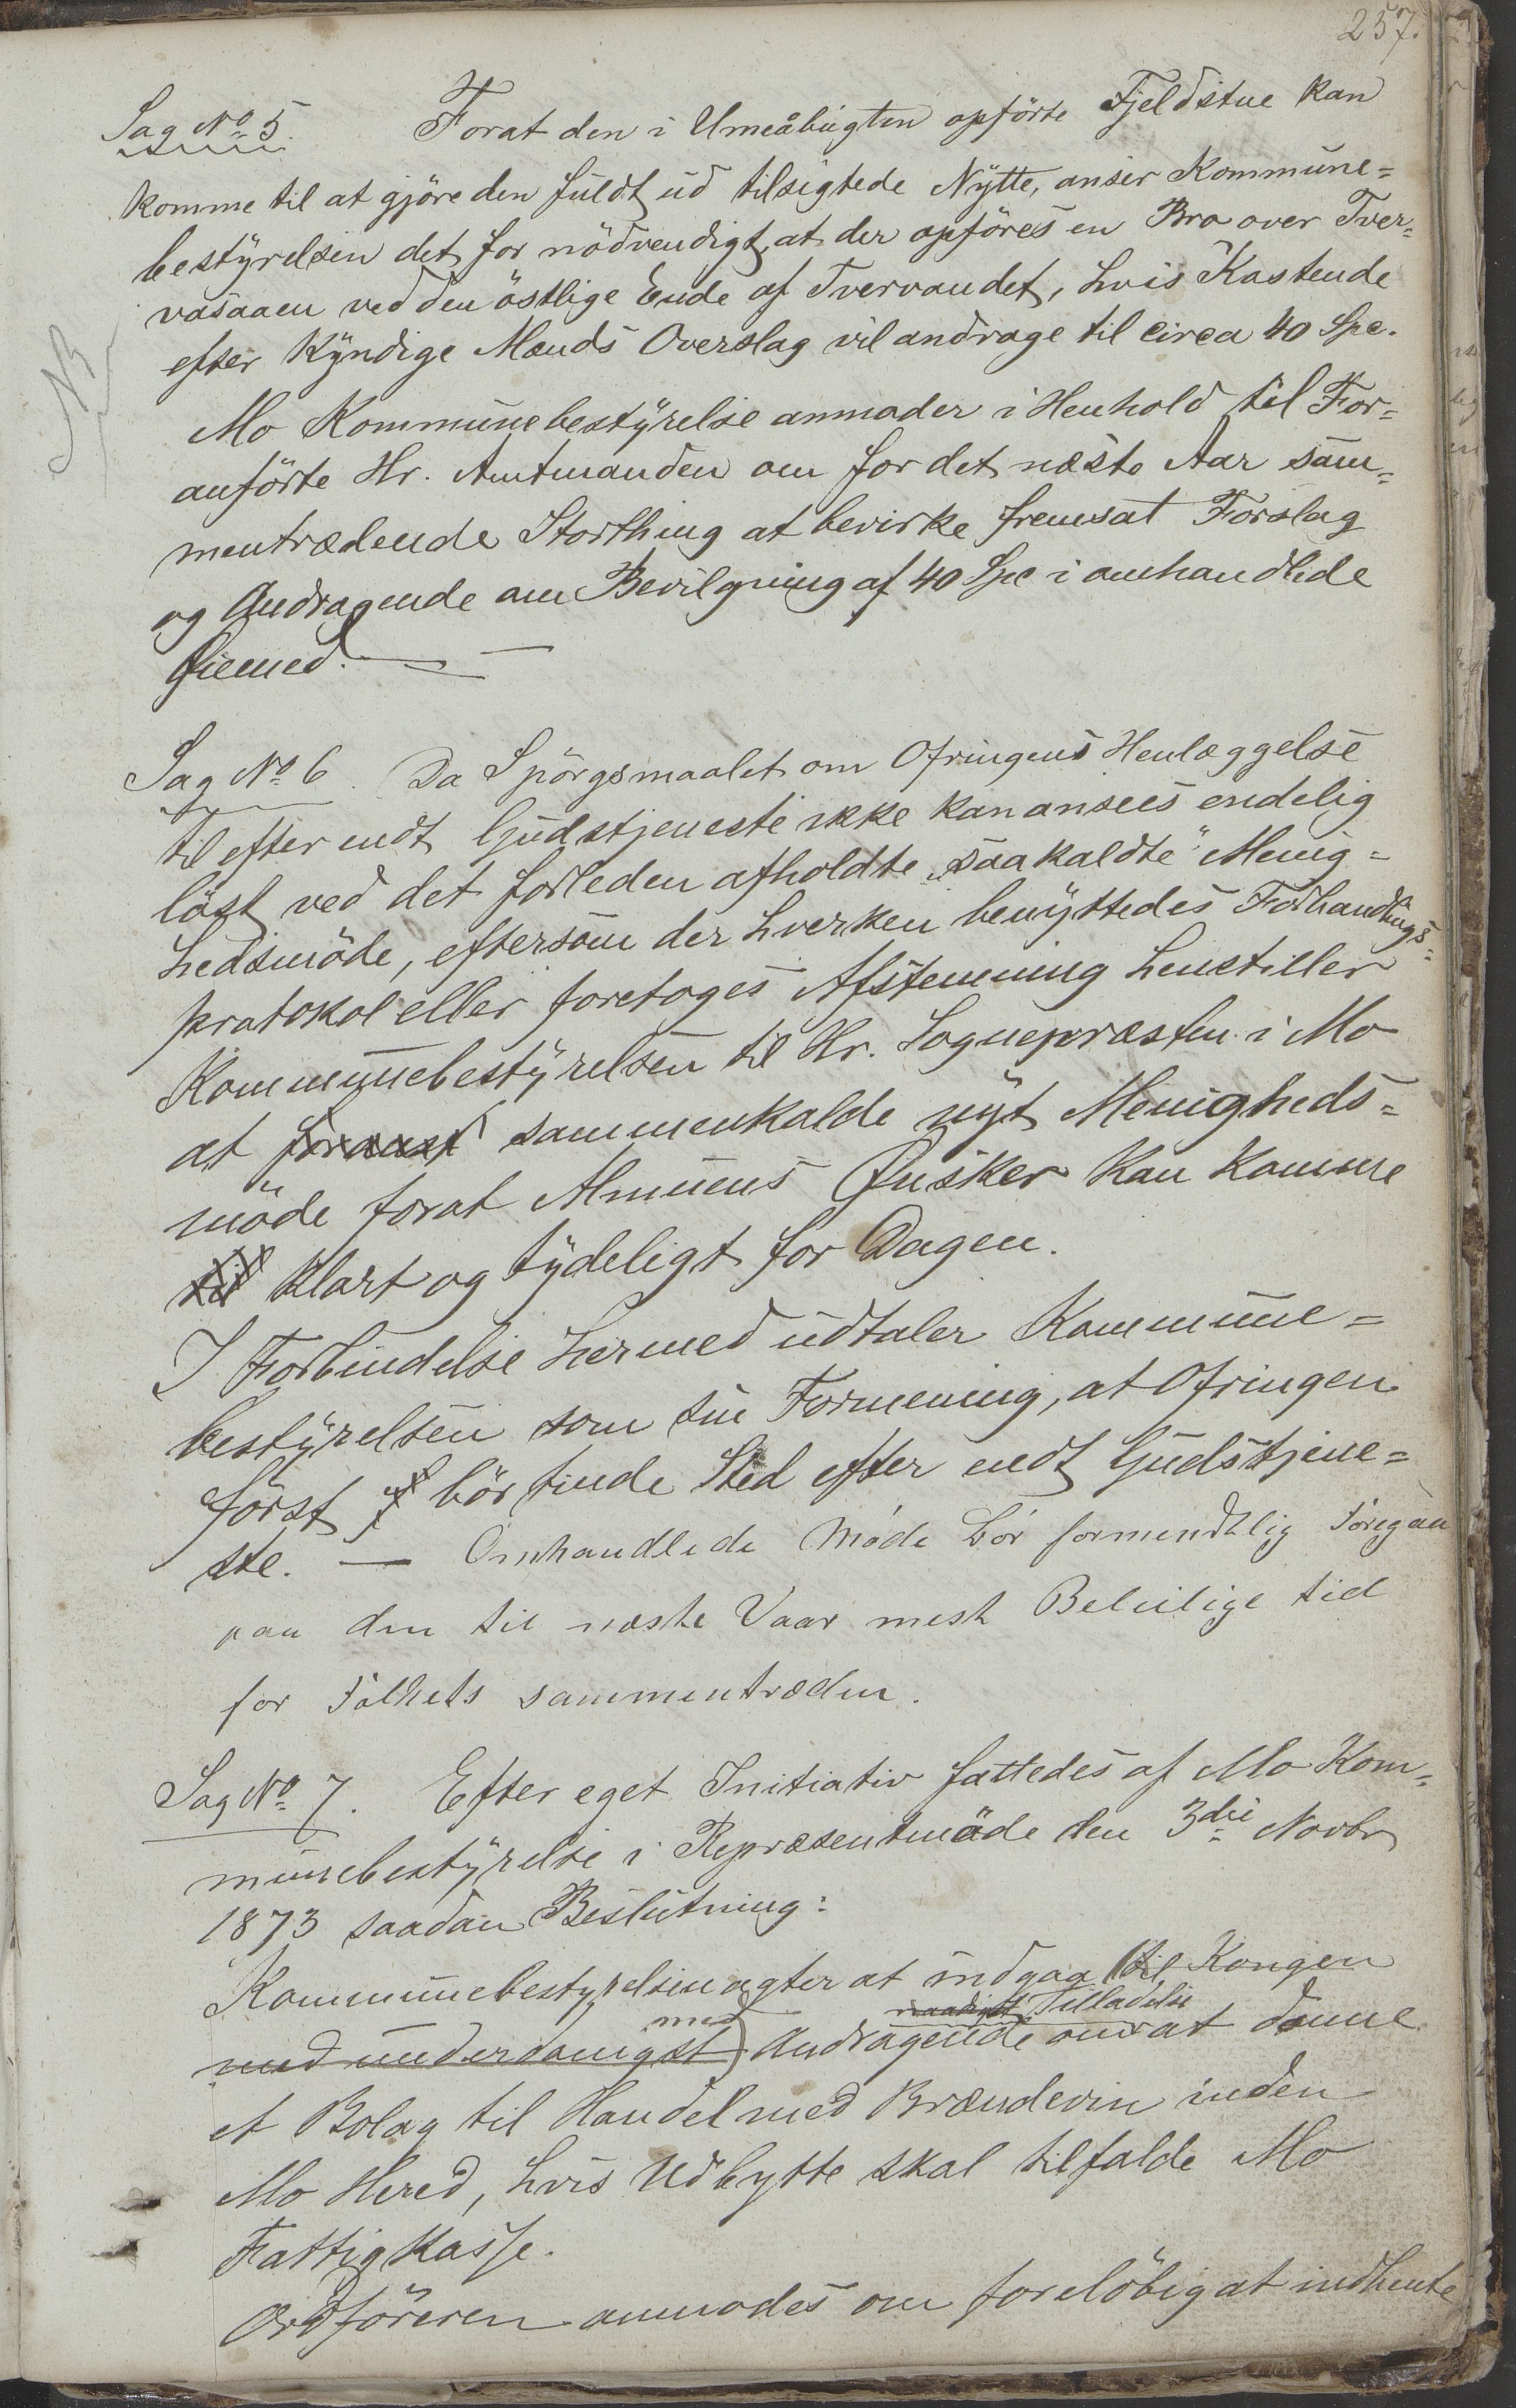 257.
Sag No 5. Forat den i Umeåbugten opförte Fjeldstue kan
komme til at gjöre den fuldt ud tilsigtede Nytte, anser Kommune=
bestyrelsen det for nödvendigt, at der opföres en Bro over Tver=
vasaaen ved den östlige Ende af Tvervandet, hvis Kostende
efter kyndige Mænds Overslag vil andrage til circa 40 Spc.
NB
Mo Kommunebestyrelse anmoder i Henhold til For=
anförte Hr. Amtmanden om for det næste Aar sam=
mentrædende Storthing at bevirke fremsat Forslag
og Andragende om Bevilgning af 40 Spc i omhandlede
Øiemed.
Sag No 6. Da Spörgsmaalet om Ofringens Henlæggelse
til efter endt Gudstjeneste ikke kan ansees endelig
löst ved det forleden afholdte "saakaldte" Menig=
hedsmöde, eftersom der hverken benyttedes Forhandlings=
protokol eller foretoges Afstemning henstiller
Kommunebestyrelsen til Hr. Sognepræsten i Mo
at sammenkalde nyt Menigheds=
möde forat Almuens Ønsker kan komme
til klart og tydeligt for Dagen.
I Forbindelse hermed udtaler Kommune=
bestyrelsen som sin Formening, at Ofringen
först bör finde Sted efter endt Gudstjene=
ste. — Omhandlede Möde bör formendtlig foregaa
paa den til næste Vaar mest Beleilige tid
for Folkets sammentræden.
Sag No 7. Efter eget Initiativ fattedes af Mo Kom=
munebestyrelse i Repræsentmöde den 3die Novbr
1873 saadan Beslutning:
Kommunebestyrelsen agter at indgaa til Kongen
med naadigst Tilladelse
med underdanigst Andragende om at danne
et Bolag til Handel med Brændevin inden
Mo Hered, hvis Udbytte skal tilfalde Mo
Fattigkasse.
Ordföreren anmodes om forelöbig at indhente